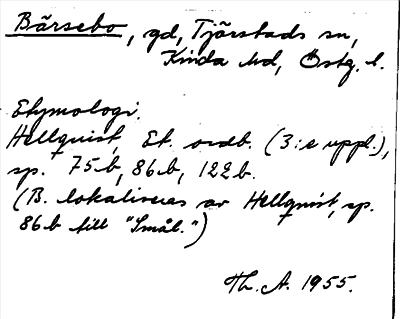 Bärsebo, gd, Tjärstads sn,
Kinda hd, Östg. l.
Etymologi.
Hellquist, Et. ordb. (3:e uppl.),
sp. 75b, 86b, 122b.
(B. lokaliseras av Hellquist, sp.
86b till "Smål.")
Th. A. 1955.